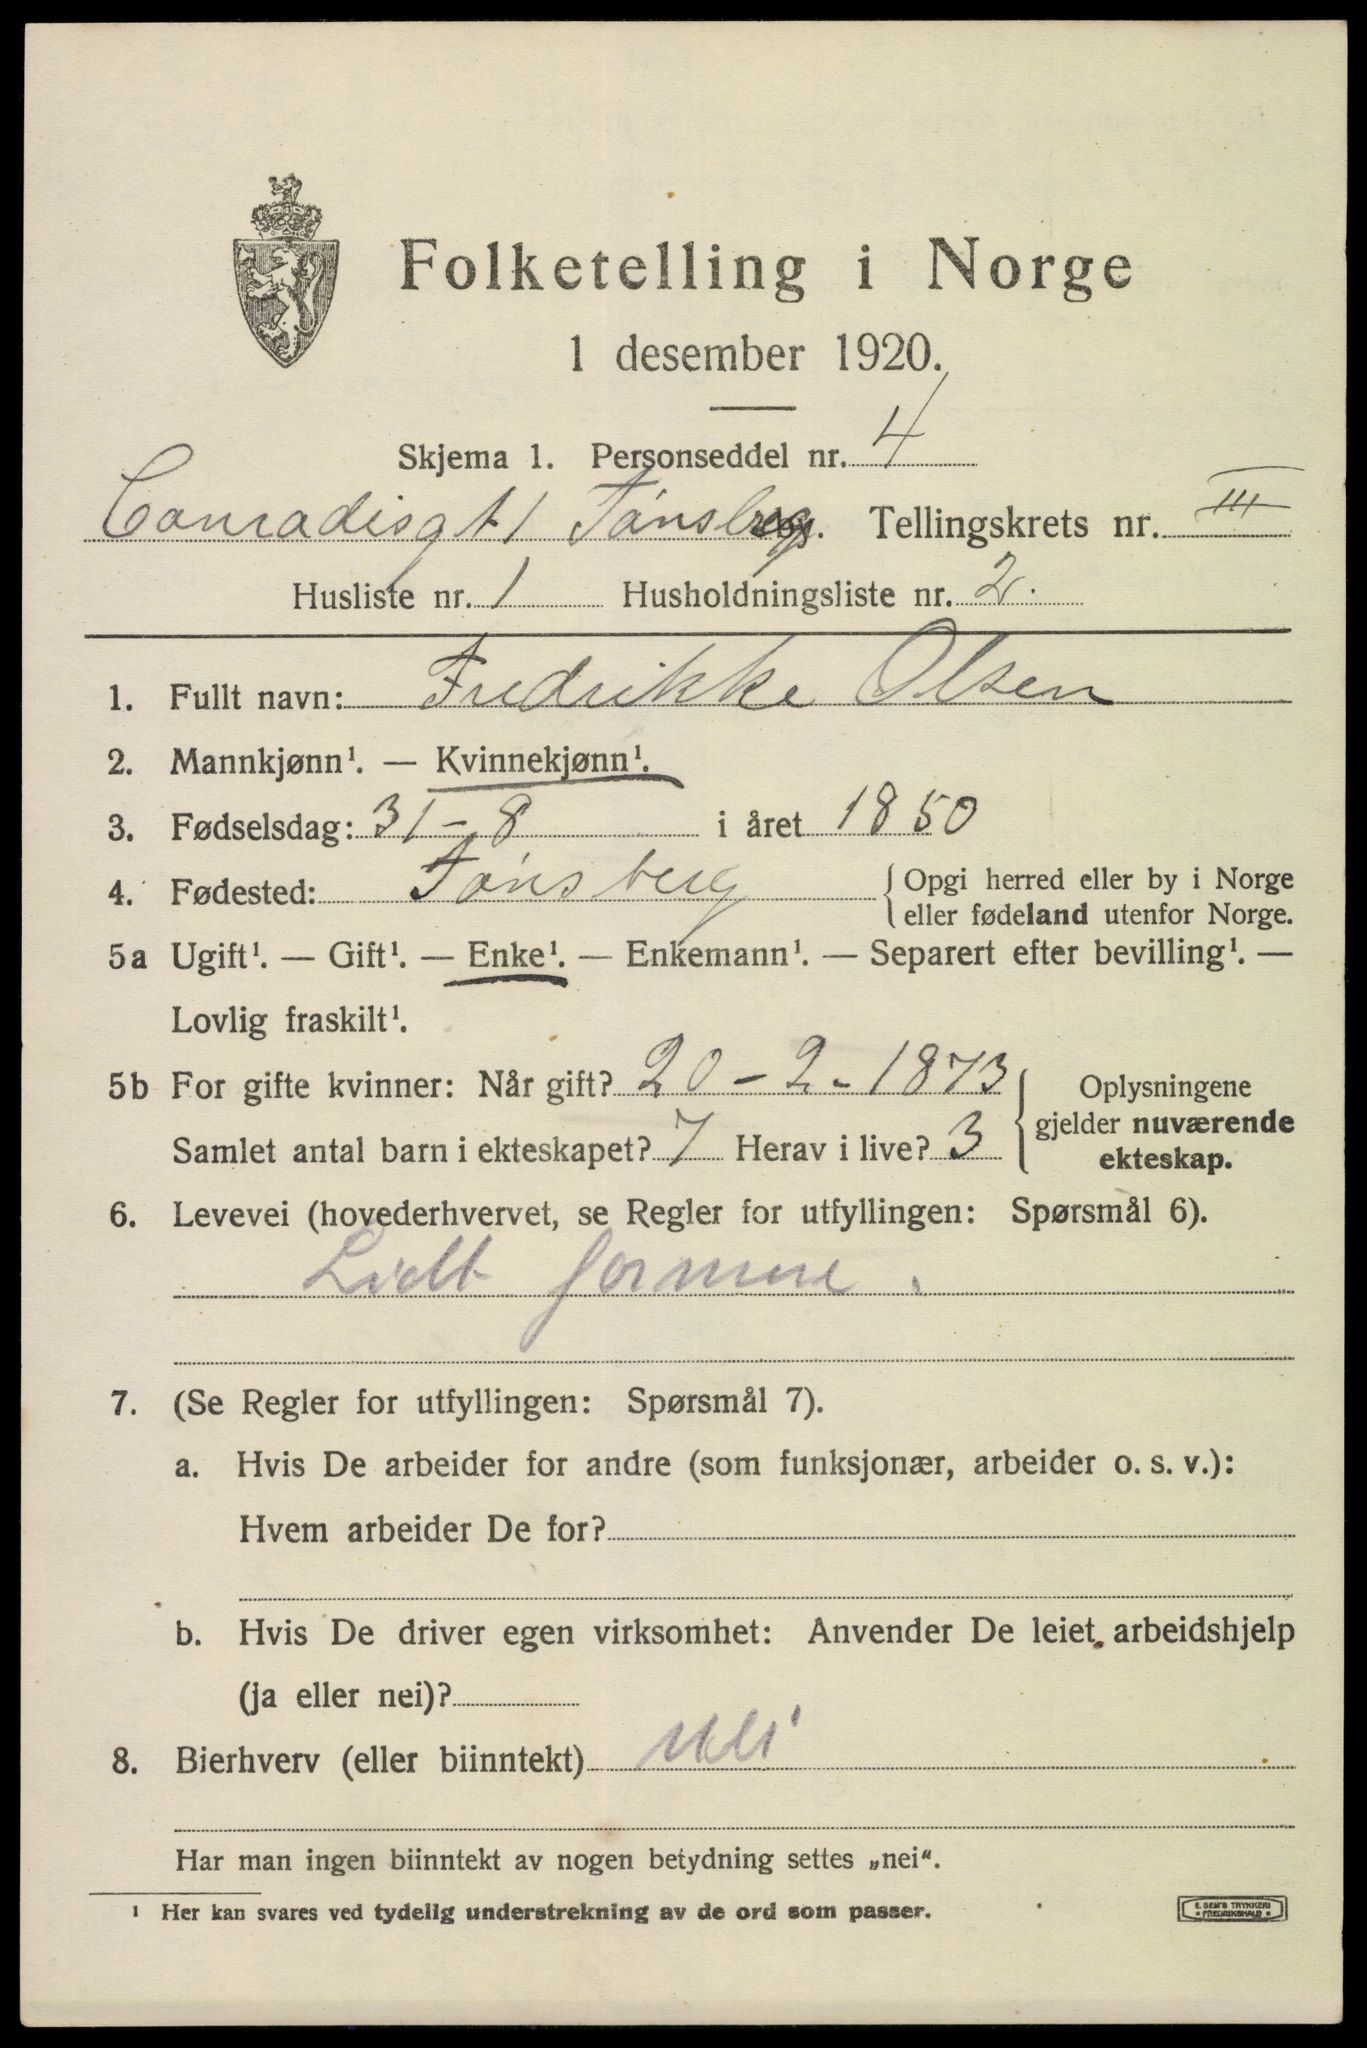 Folketelling i Norge
1 desember 1920.
Skjema 1. Personseddel nr. 4
Conradisgt 1 Tønsberg. Tellingskrets nr. III
Husliste nr. 1 Husholdningsliste nr. 2.
1. Fullt navn: Fredrikke Olsen
2. Mannkjønn¹. — Kvinnekjønn¹.
3. Fødselsdag: 31-8 i året 1850
4. Fødested: Tønsberg { Opgi herred eller by i Norge
eller fødeland utenfor Norge.
5a Ugift¹. — Gift¹. — Enke¹. — Enkemann¹. — Separert efter bevilling¹. —
Lovlig fraskilt¹.
5b For gifte kvinner: Når gift? 20-2-1873 { Oplysningene
gjelder nuværende
Samlet antal barn i ekteskapet? 7 Herav i live? 3
ekteskap.
6. Levevei (hovederhvervet, se Regler for utfyllingen: Spørsmål 6).
Lidt formue.
7. (Se Regler for utfyllingen: Spørsmål 7).
a. Hvis De arbeider for andre (som funksjonær, arbeider o. s. v.):
Hvem arbeider De for?
b. Hvis De driver egen virksomhet: Anvender De leiet arbeidshjelp
(ja eller nei)?
8. Bierhverv (eller biinntekt) Nei
Har man ingen biinntekt av nogen betydning settes „nei“.
¹ Her kan svares ved tydelig understrekning av de ord som passer.
E. SEM'S TRYKKERI
* FREDRIKSHALD *